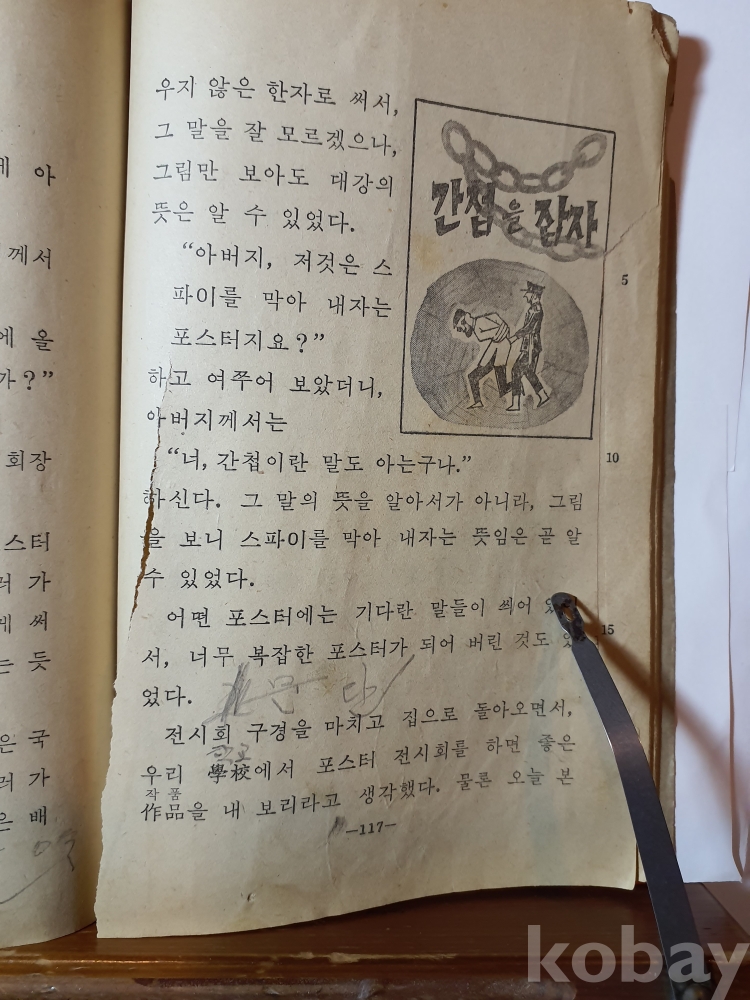 아
께서
에 올
가?”
회장
스터
러 가
써
는 듯
은 국
러 가
은 배
우지 않은 한자로 써서,
그 말을 잘 모르겠으나,
그림만 보아도 대강의
뜻은 알 수 있었다.
“아버지, 저것은 스
파이를 막아 내자는
포스터지요?”
하고 여쭈어 보았더니,
아버지께서는
간첩을 잡자
5
“너, 간첩이란 말도 아는구나.”
10
하신다. 그 말의 뜻을 알아서가 아니라, 그림
을 보니 스파이를 막아 내자는 뜻임은 곧 알
수 있었다.
어떤 포스터에는 기다란 말들이 씌어 있
서, 너무 복잡한 포스터가 되어 버린 것도 있
15
었다.
전시회 구경을 마치고 집으로 돌아오면서,
우리 學校에서 포스터 전시회를 하면 좋은
작 품
作品을 내 보리라고 생각했다. 물론 오늘 본
—117—
kobay